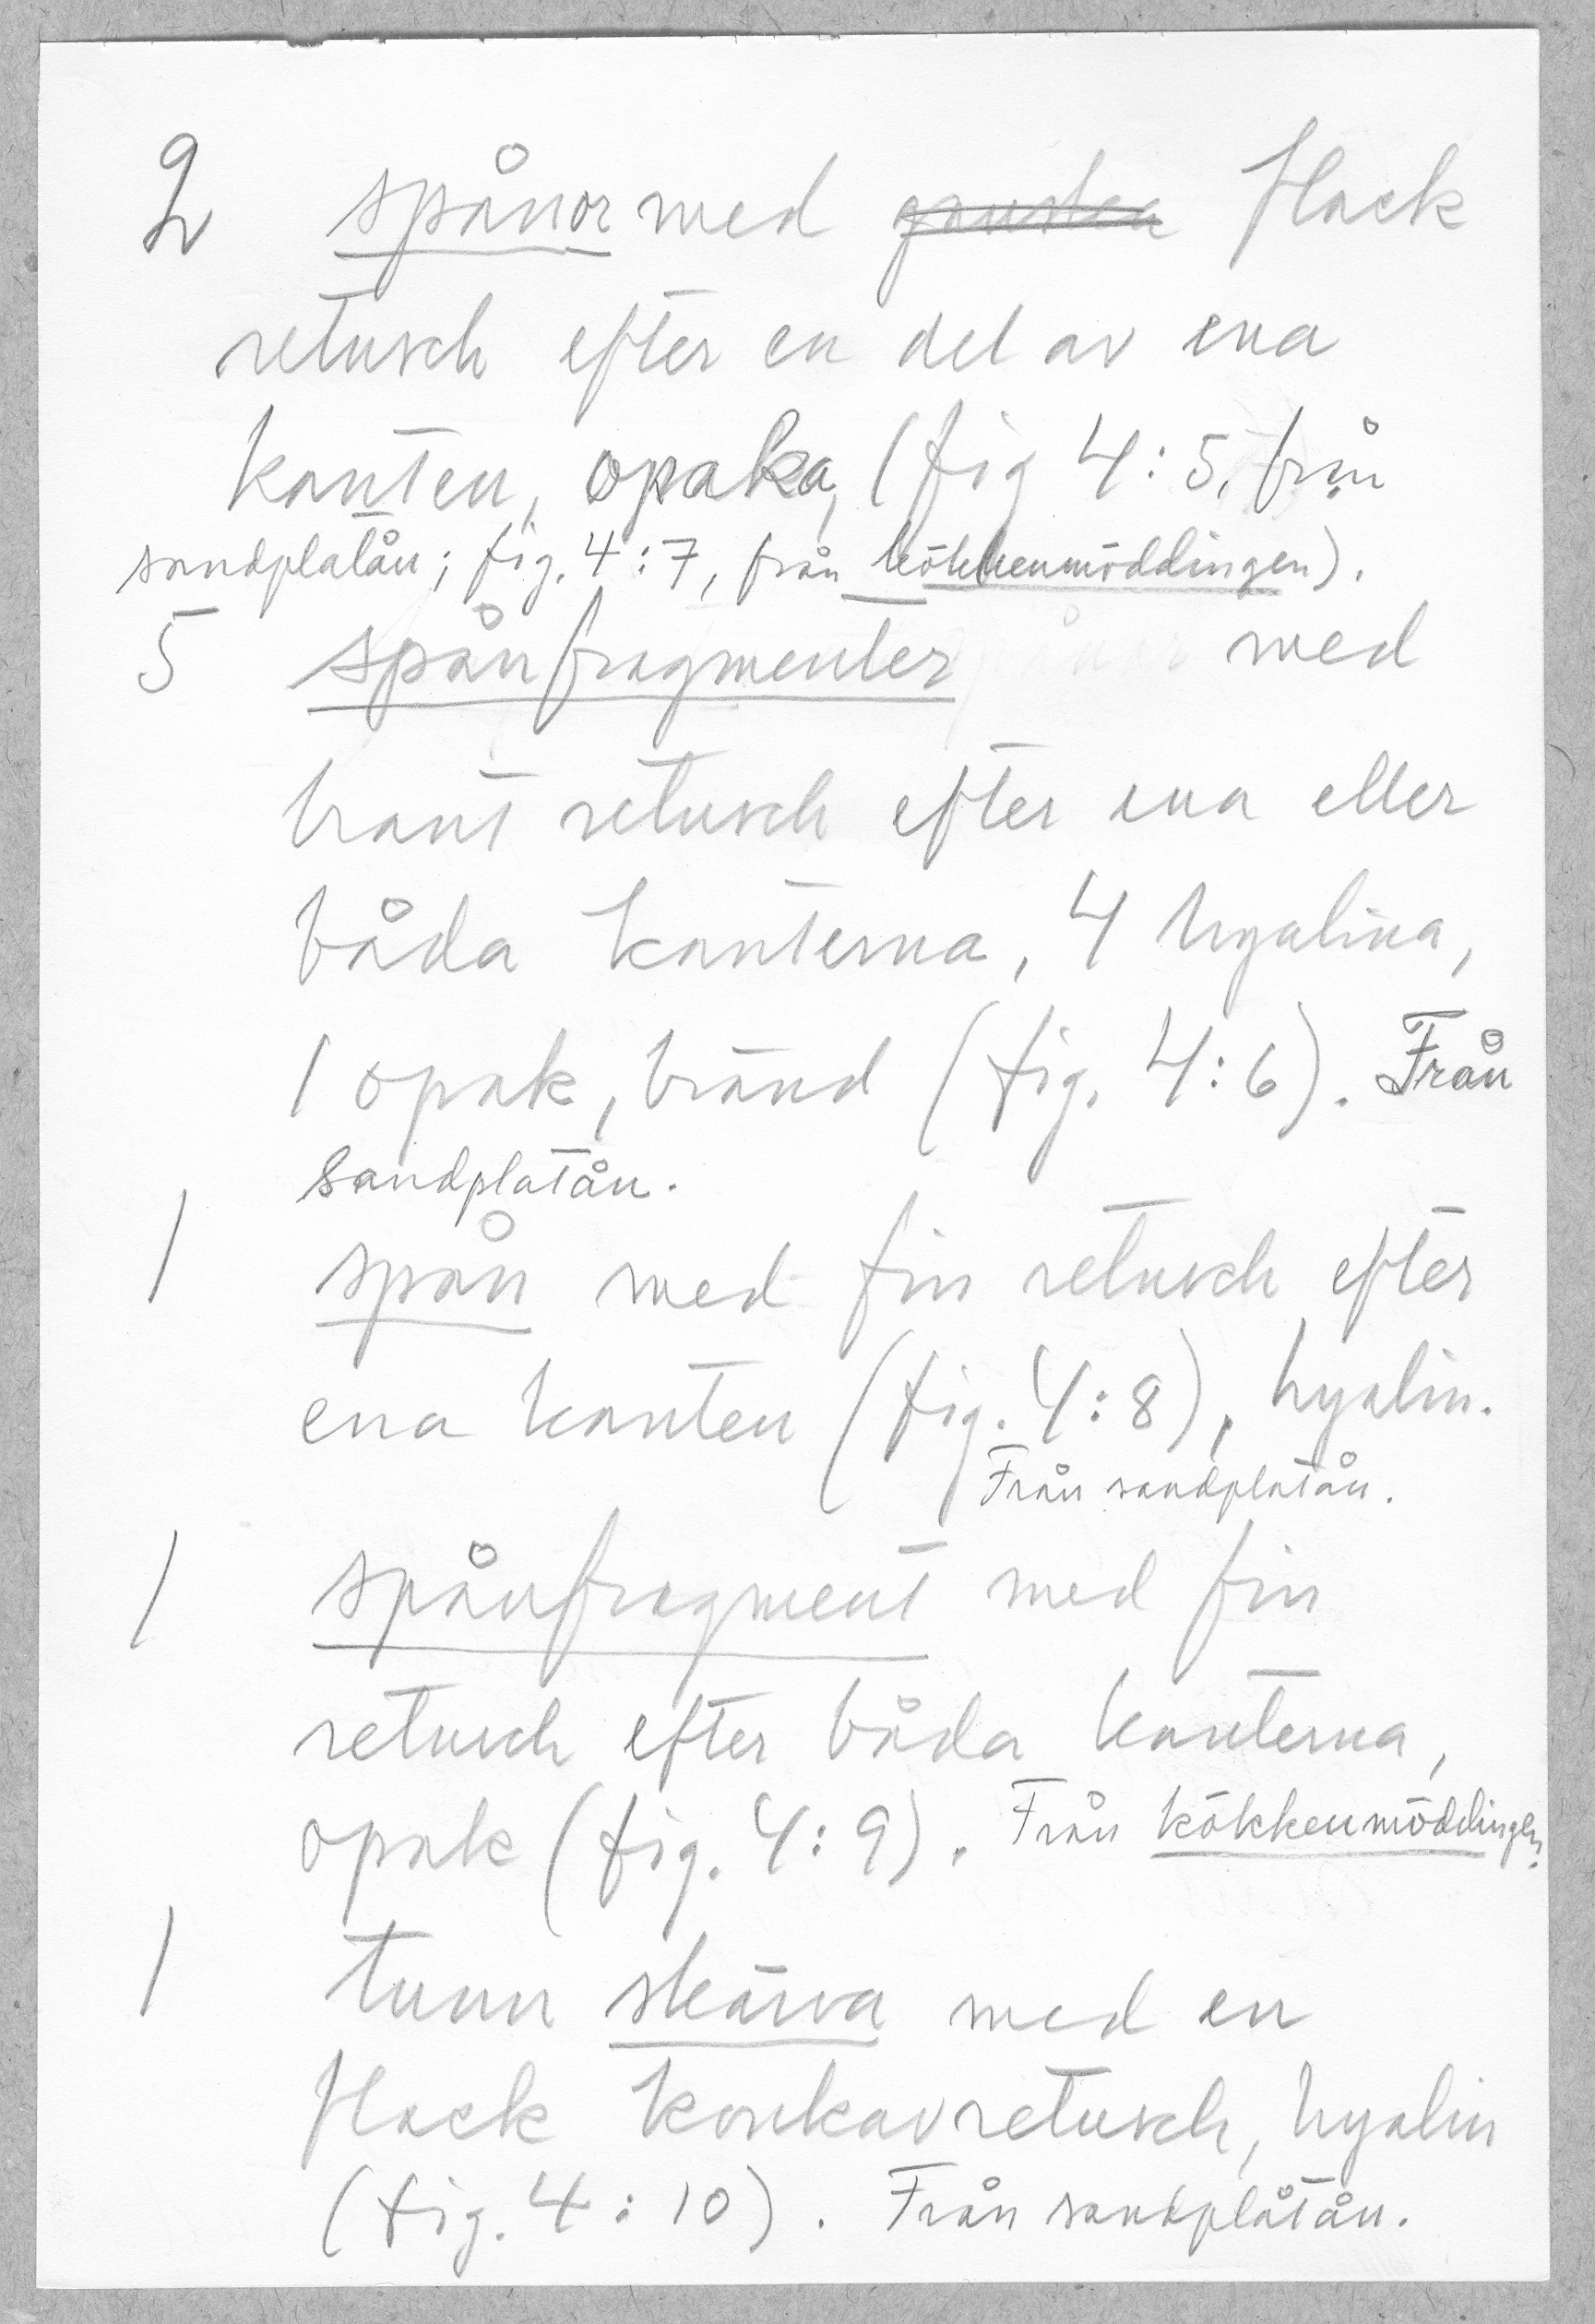 2 spånor med flack
retusch efter en del av ena
kanten, opaka, (fig 4:5, från
sandplatån; fig. 4:7, från kökkenmöddingen).
5 spånfragmenter med
brant retusch efter ena eller
båda kanterna, 4 hyalina,
1 opak, bränd (fig. 4:6). Från
sandplatån.
1 spån med fin retusch efter
ena kanten (fig. 4:8), hyalin.
Från sandplatån.
1 spånfragment med fin
retusch efter båda kanterna,
opak (fig. 4:9). Från kökkenmöddingen.
1 tunn skärva med en
flack konkavretusch, hyalin
(fig. 4:10). Från sandplåtån.